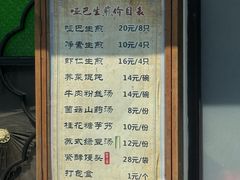 哑巴生煎价目表
哑巴生煎 20元/8只
净素生煎 16元/8只
虾仁生煎 16元/4只
荠菜馄饨 14元/碗
牛肉粉丝汤 14元/碗
菌菇山药汤 8元/份
桂花糖芋艿 10元/份
苏式绿豆汤 12元/份
紧酵馒头 28元/袋
打包盒 1元/个